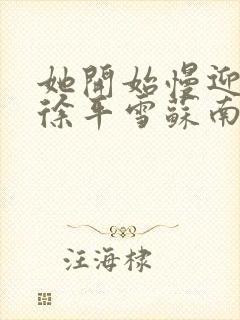 她開始慢迎
徐年雪蘇南
汪海棣